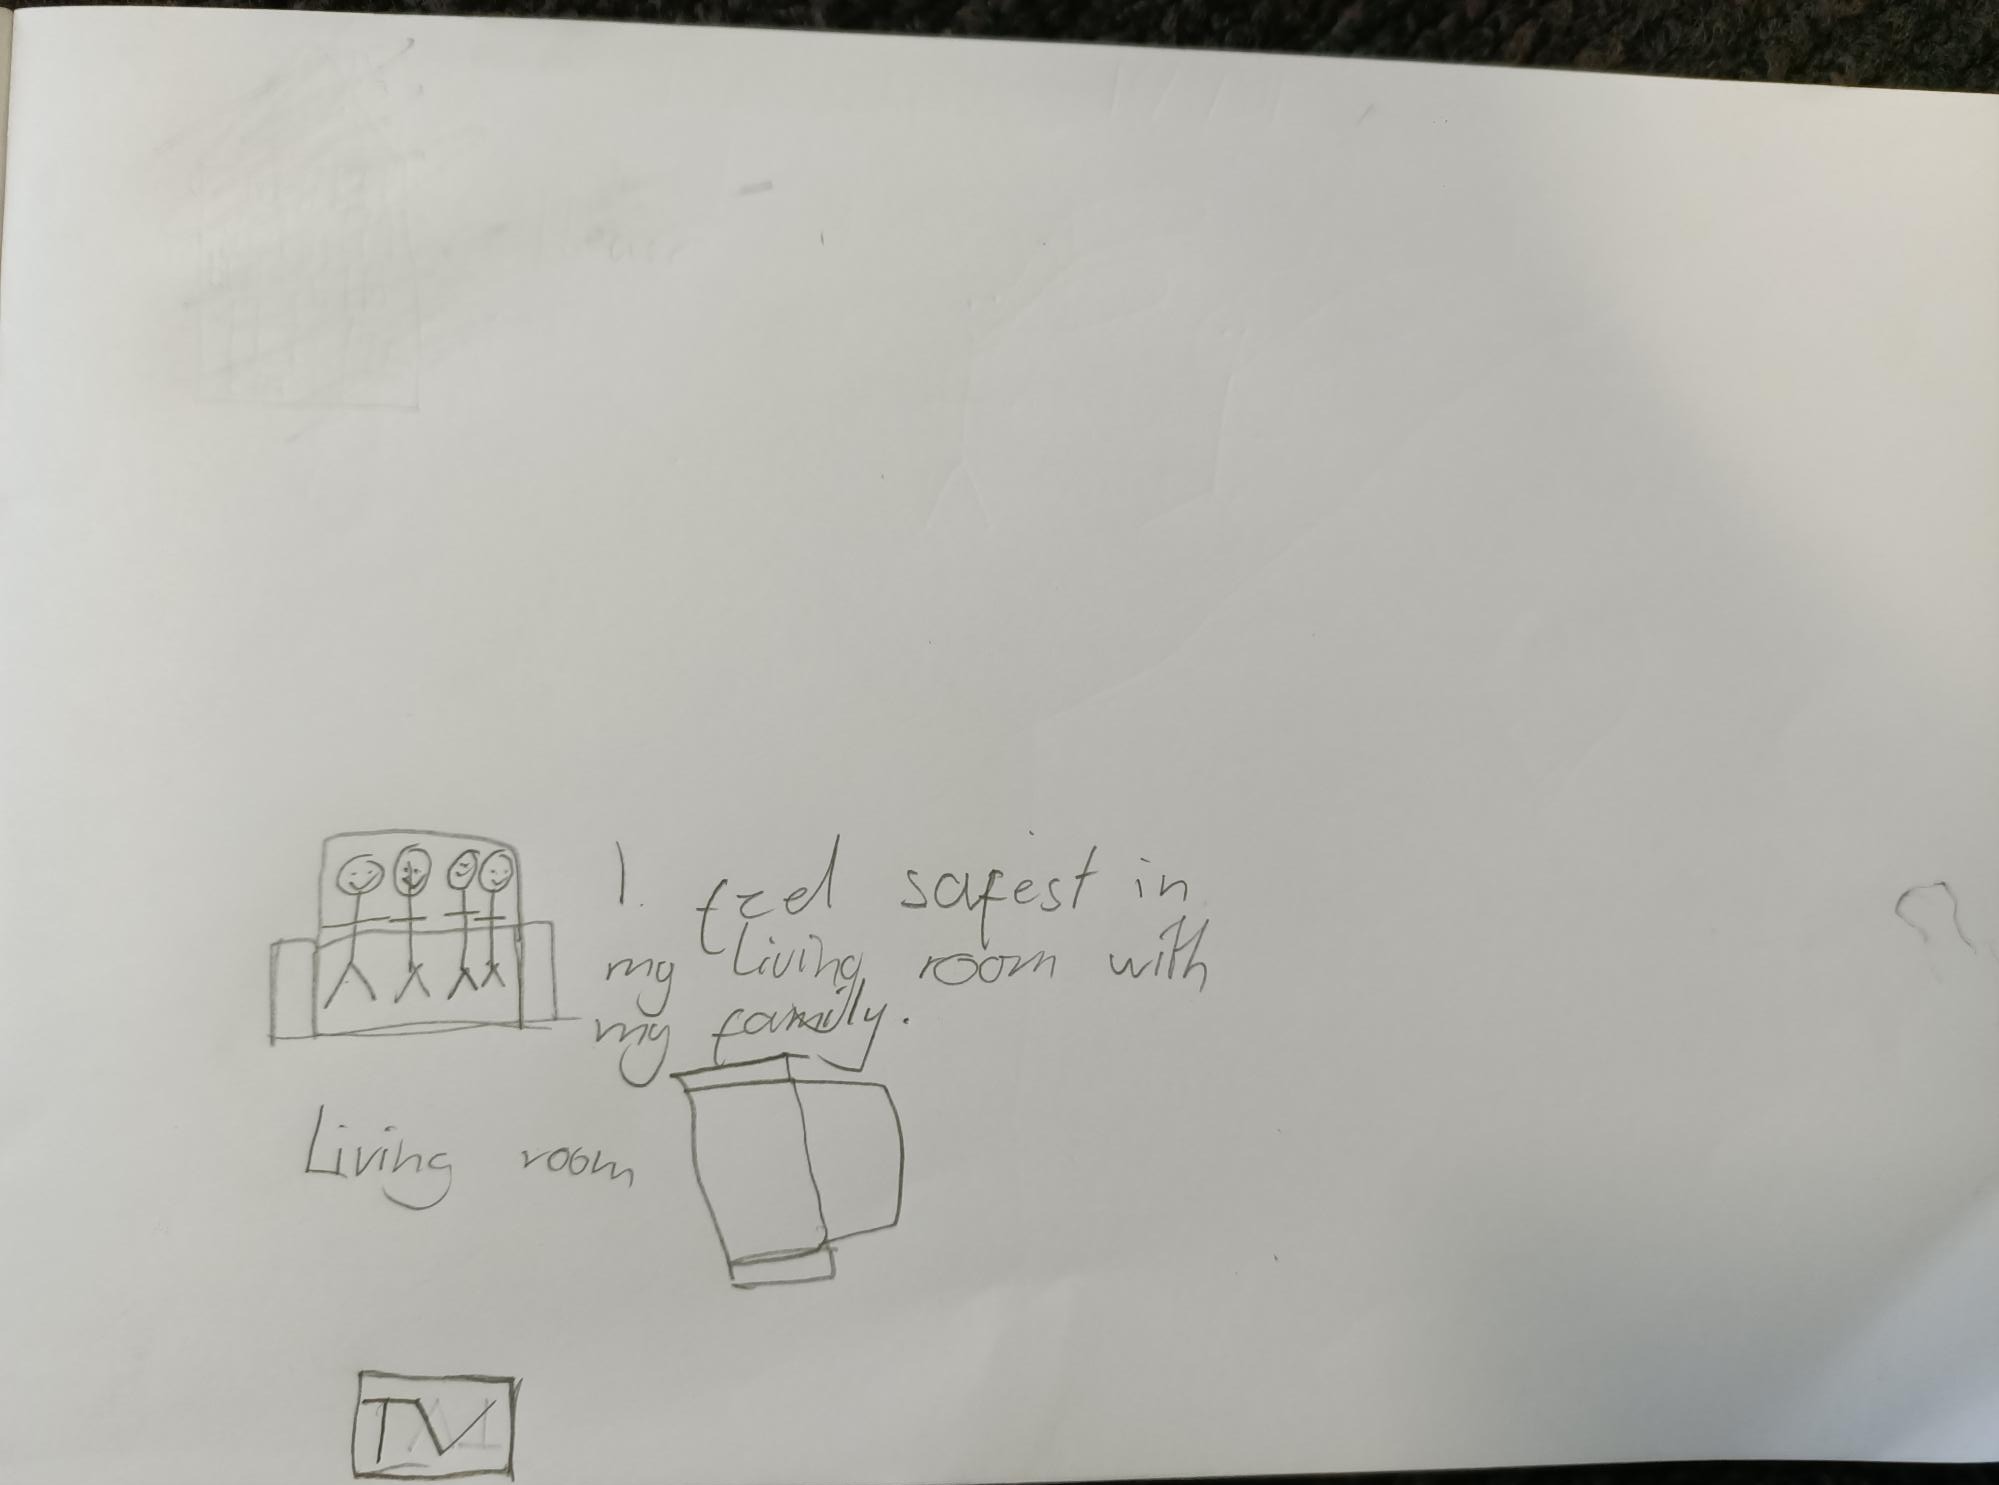 I feel safest in
my living room with
my family.
Living room
TV